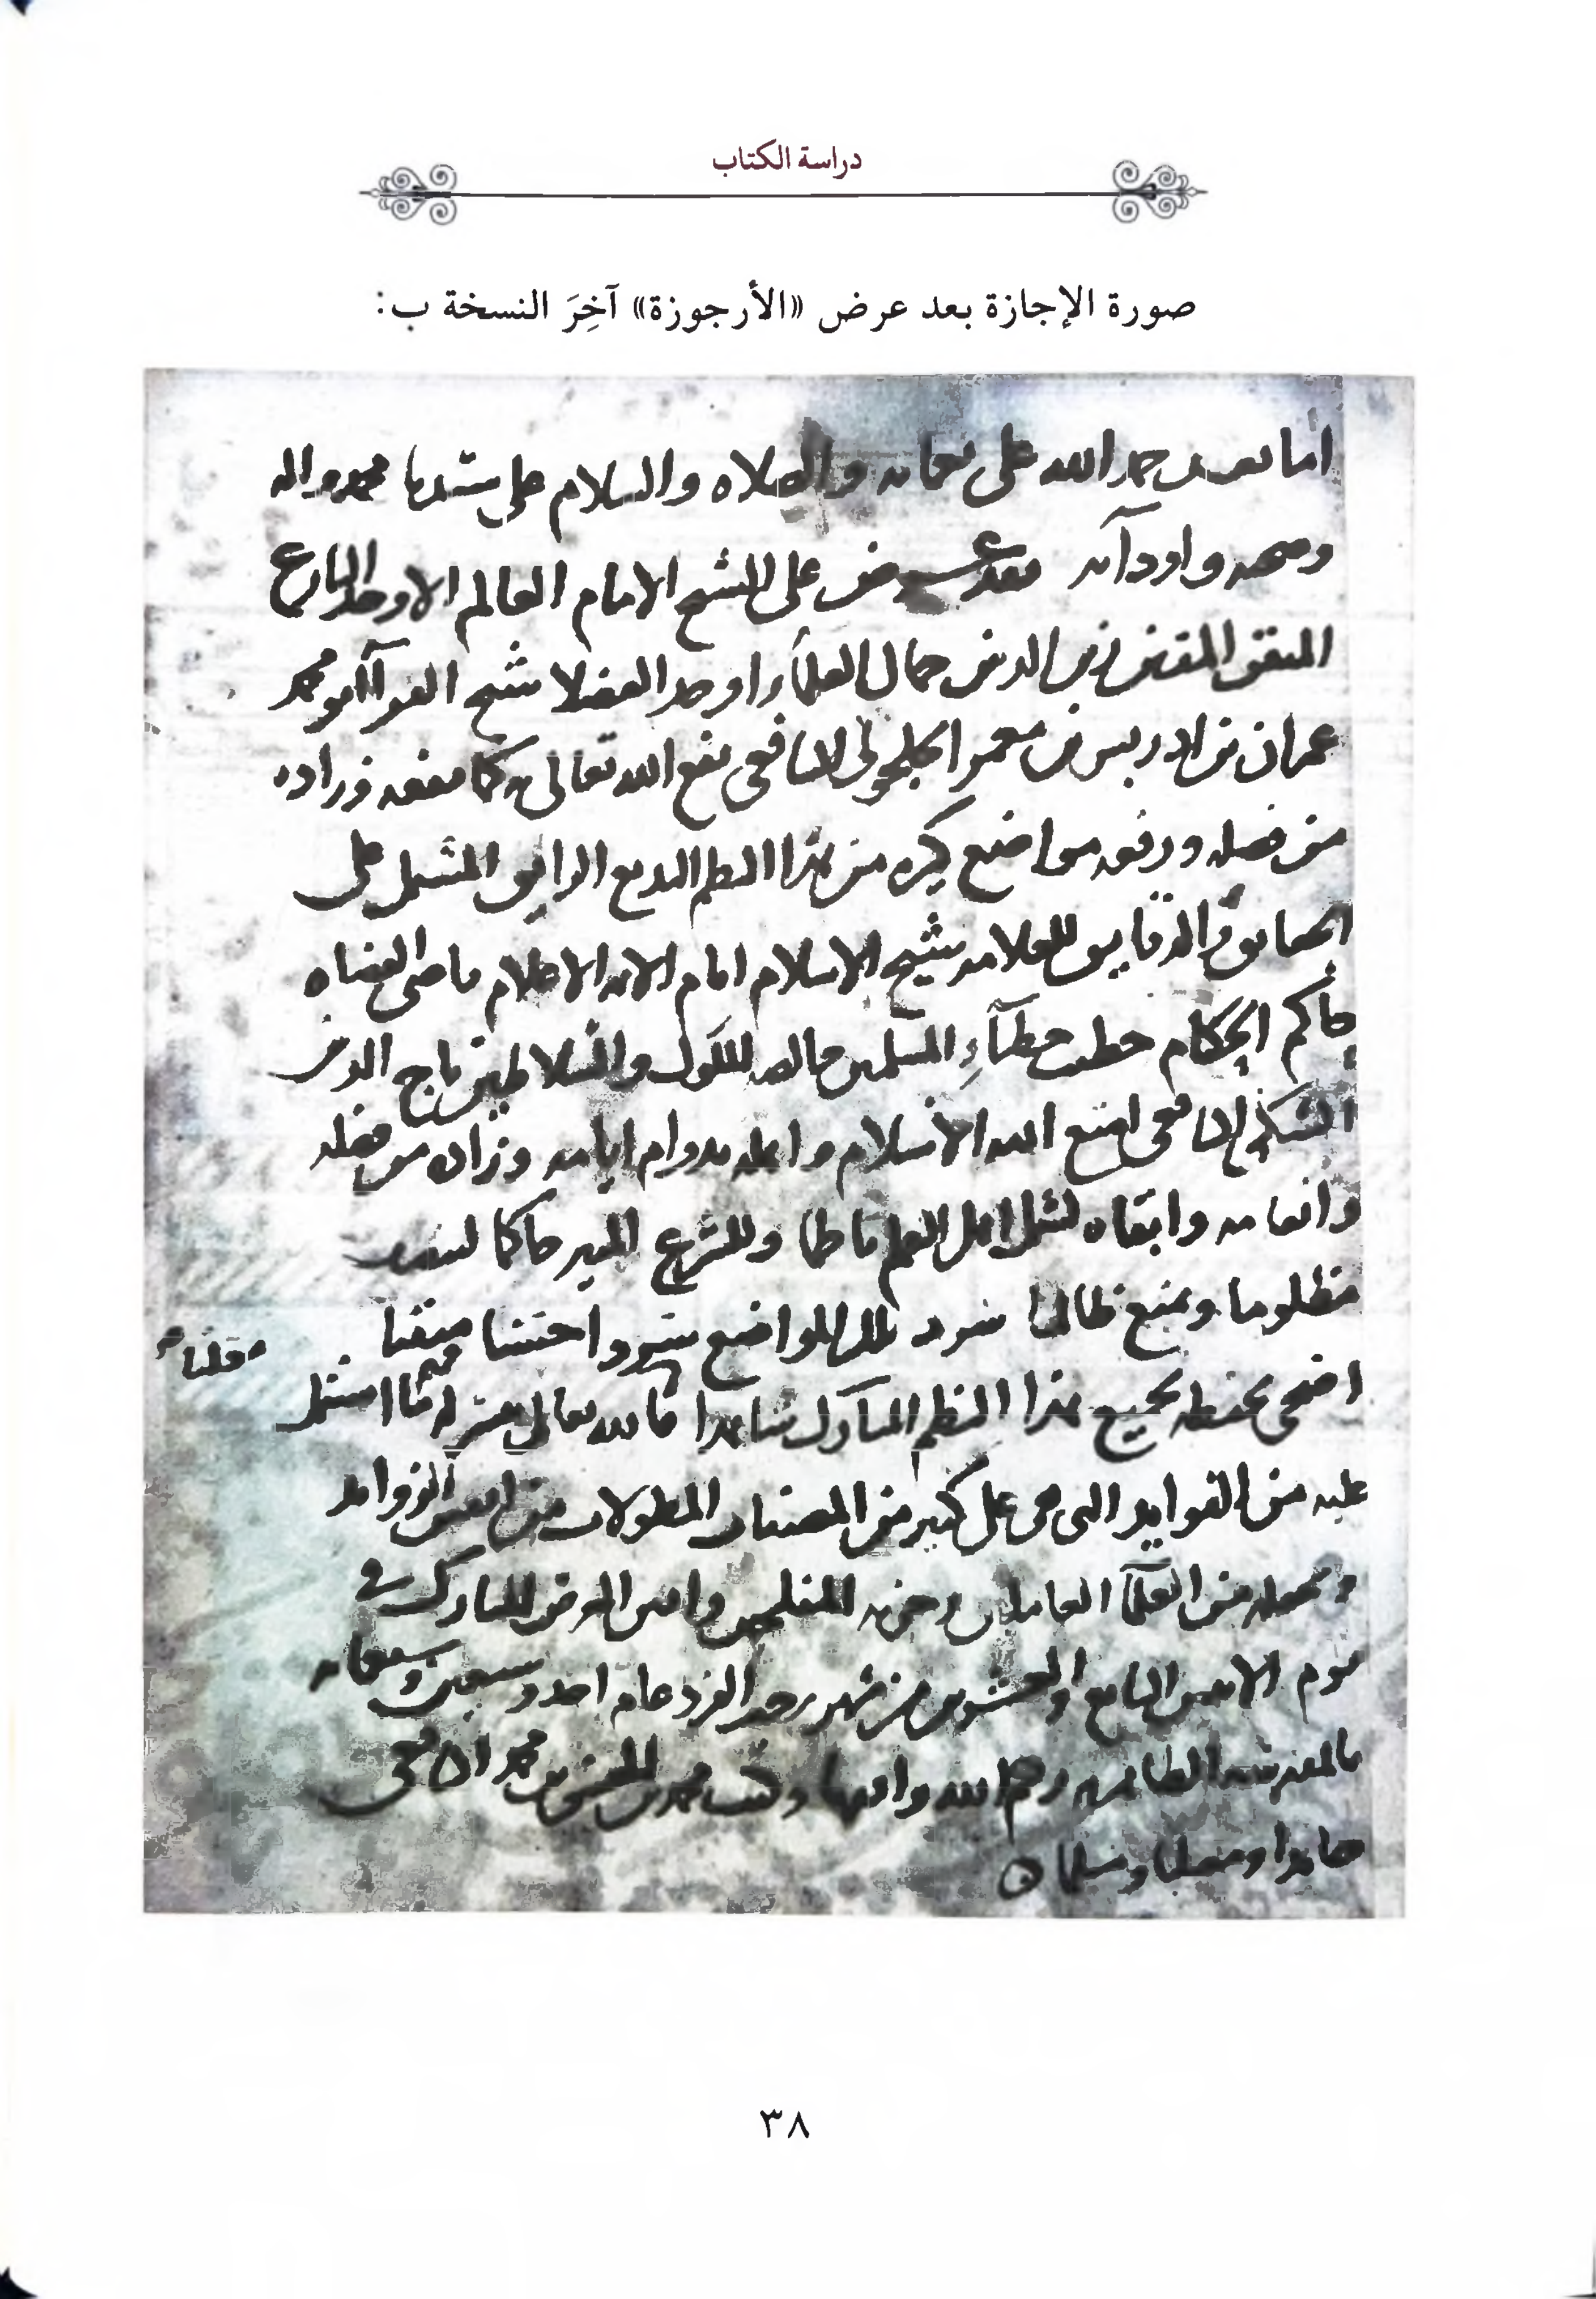 دراسة الكتاب
صورة الإجازة بعد عرض «الأرجوزة» آخِرَ النسخة ب:
اما بعد حمد الله على نعمائه والصلاه والسلام على سيدنا محمد واله
وصحبه واودآئه فقد عرض على الشيخ الامام العالم الاوحد البارع
المتقن المفنن زين الدين جمال العلمآء اوحد الفضلا شيخ القرآء ابو محمد
عمران بن ادريس بن معمر الجلجولى الشافعى نفع الله تعالى به كما نفعه وزاده
من فضله ورفعه مواضع كثيره من هذا النظم البديع الرايق المشتمل على
الحقايق والدقايق للعلامه شيخ الاسلام امام الايمه الاعلام قاضى القضاه
حاكم الحكام خطيب خطبآءِ المسلمين خالصه الملوك والسلاطين تاج الدين
السبكى الشافعى امتع الله الاسلام واهله بدوام ايامه وزاده من فضله
وانعامه وابقاه لشمل اهل العلم ناظما وللشرع المنير حاكما لينصر
مظلوما ويمنع ظالما سرد تلك المواضع سردا حسنا متقنا
اضحى بحفظه لجميع هذا النظم المبآرك شاهدا فالله تعالى ينفعه بما اشتمل
عليه من الفوايد التى هى على كثير من المصنفات المطولات من الزوايد
ويجعله من العلمآ العاملين وحزبه المفلحين العرض المبارك فى
يوم الاثنين السابع والعشرين من شهر رجب الفرد عام احد وستين وسبعمايه
بالمدرسه الظاهريه رحم الله واقفها وكتب محمد بن محمد الشافعى
حامدا ومصليا ومسلما
٣٨